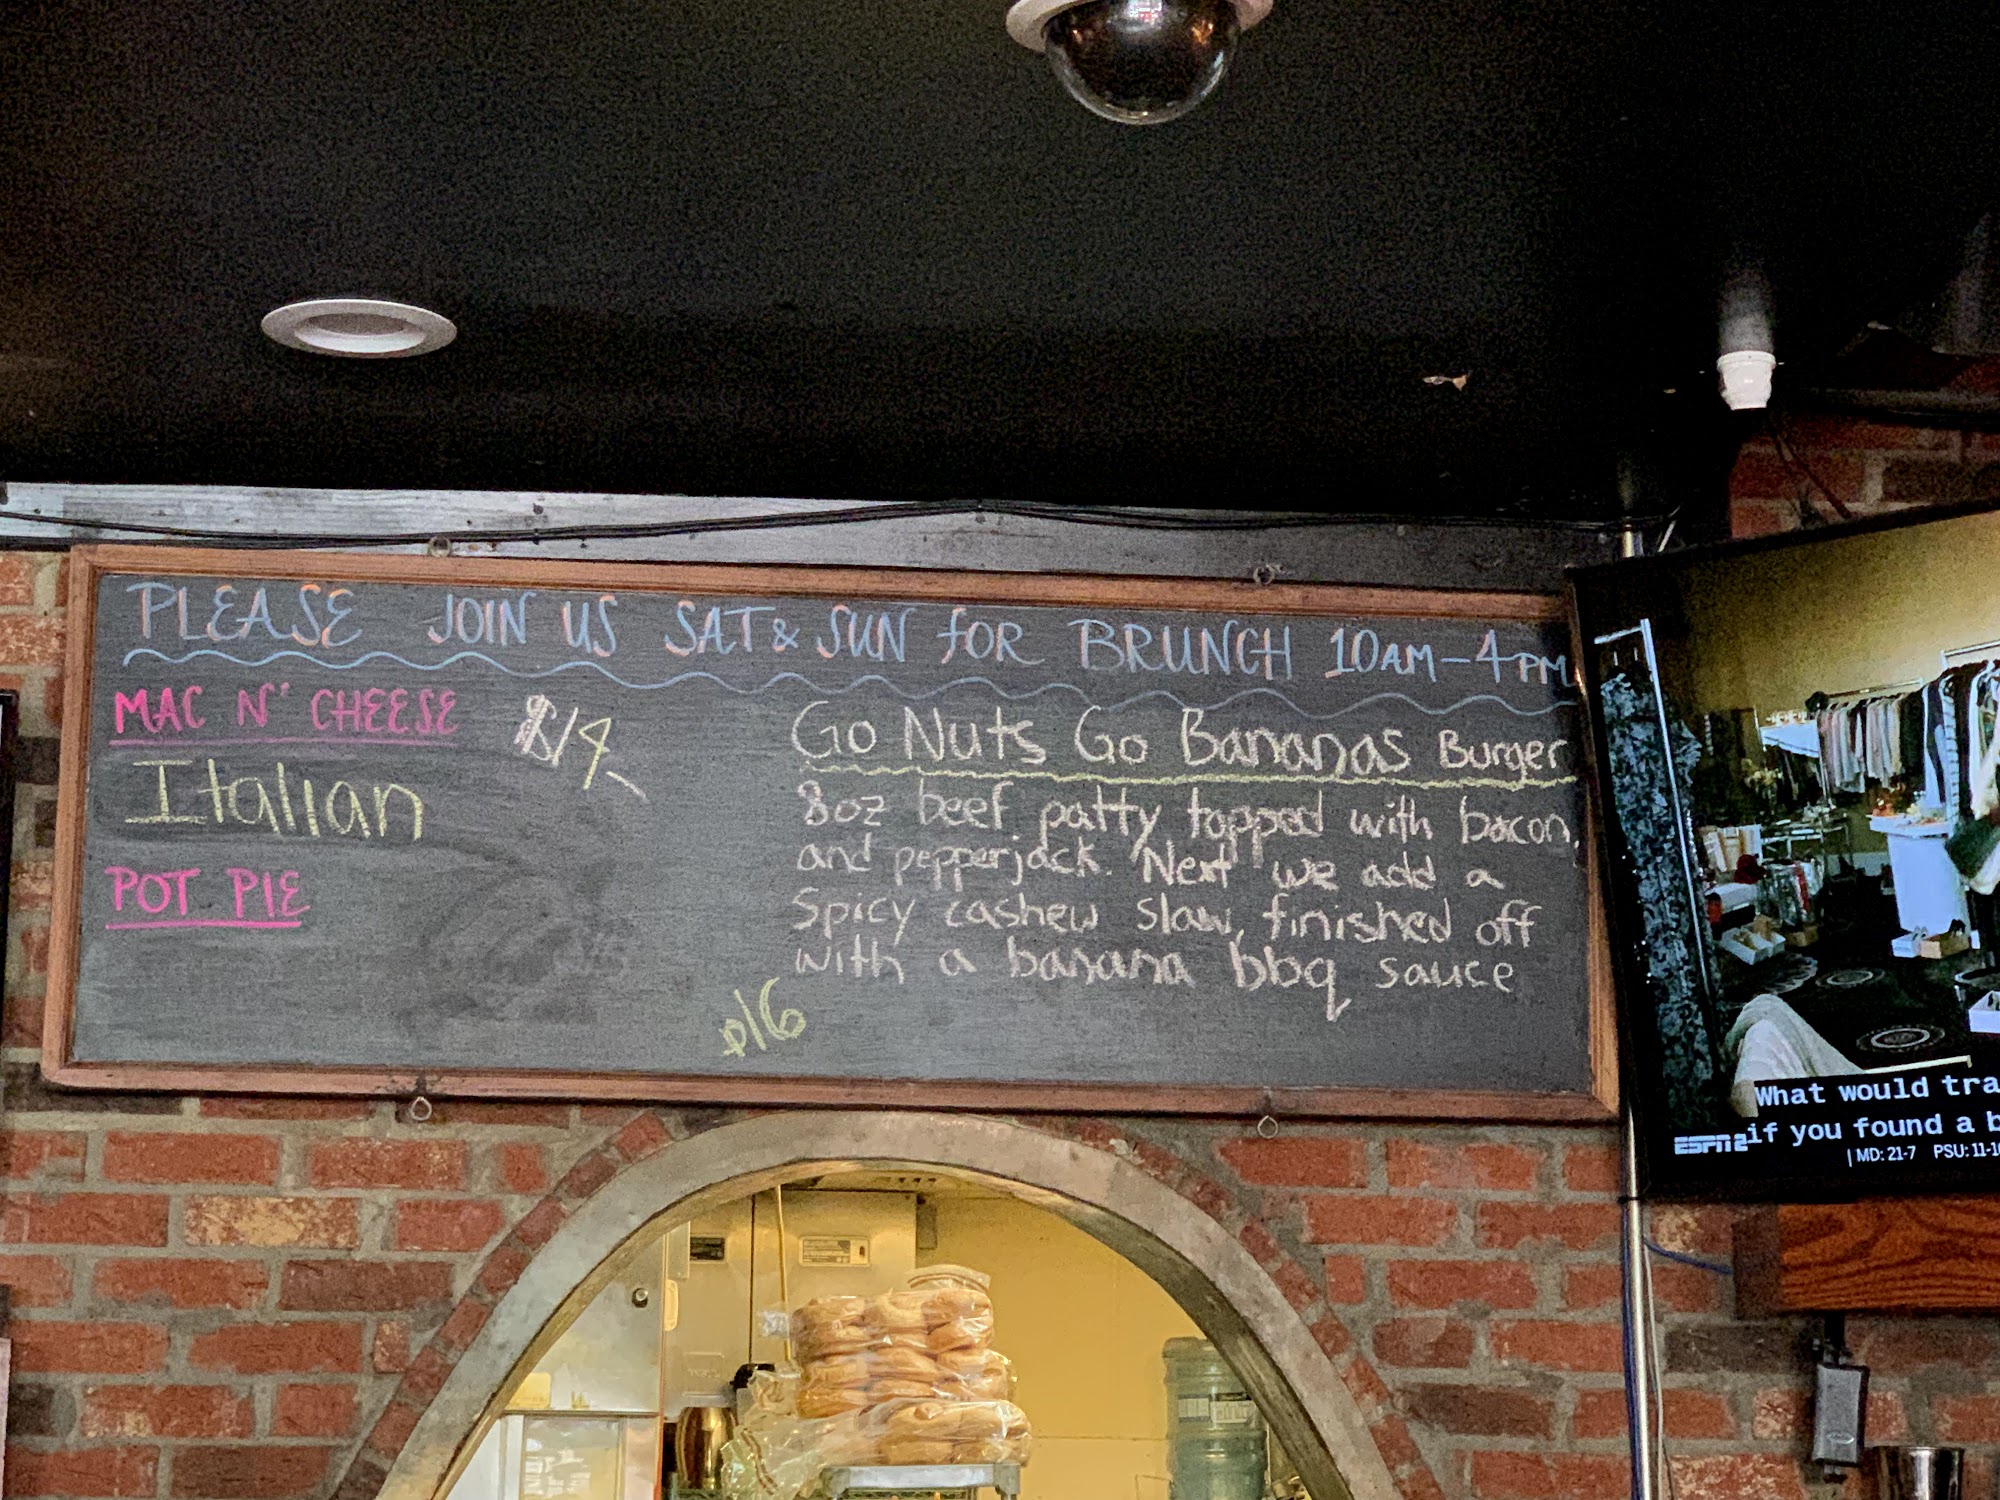 PLEASE JOIN US SAT & SUN fOR BRUNCH 10AM-4PM
MAC N' CHEESE $14
Italian
POT PIE
Go Nuts Go Bananas Burger
8oz beef patty topped with bacon,
and pepperjack. Next we add a
Spicy cashew slaw, finished off
with a banana bbq sauce
$16
What would tra
if you found a b
ESPN2
| MD: 21-7 PSU: 11-1